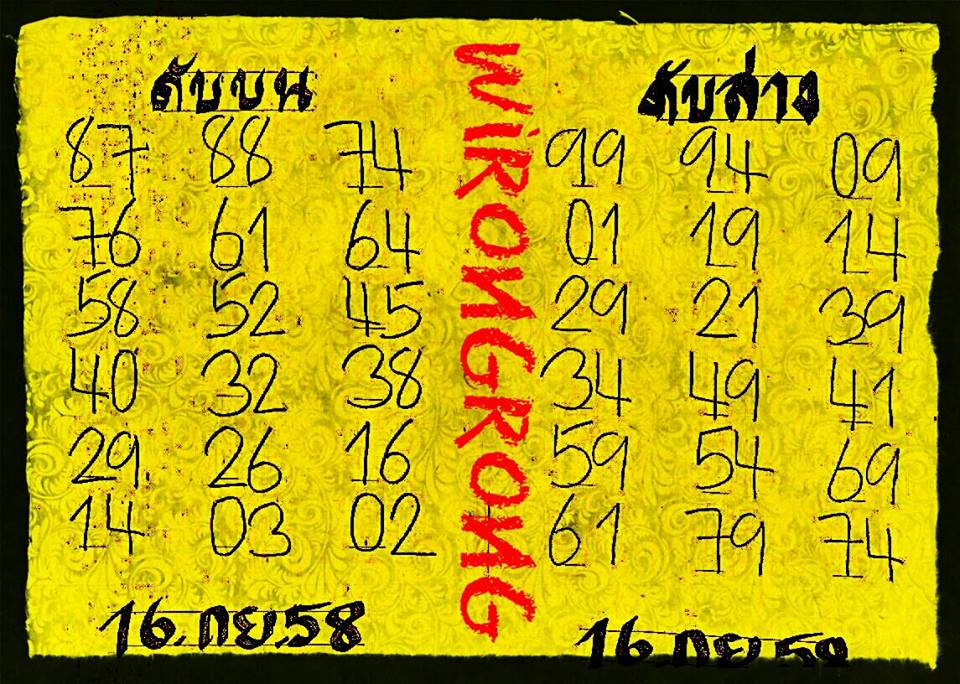 ดับบน
87 88 74
76 61 64
58 52 45
40 32 38
29 26 16
14 03 02
16.กย.58
WiRONGRONG
ดับล่าง
99 94 09
01 19 14
29 21 39
34 49 41
59 54 69
61 79 74
16.กย.58